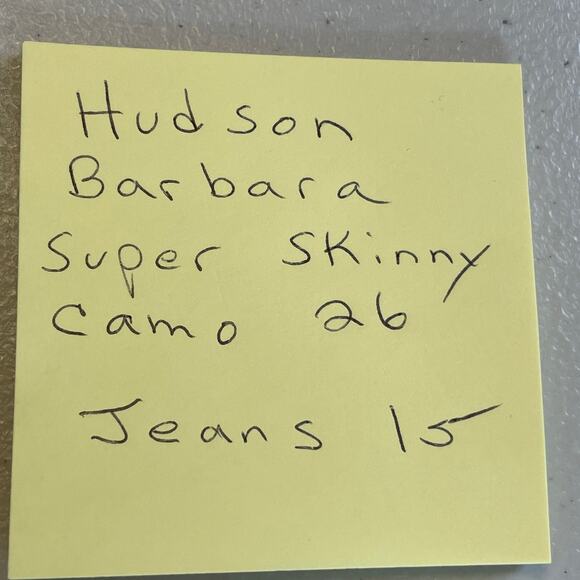 Hudson
Barbara
Super Skinny
Camo 26
Jeans 15